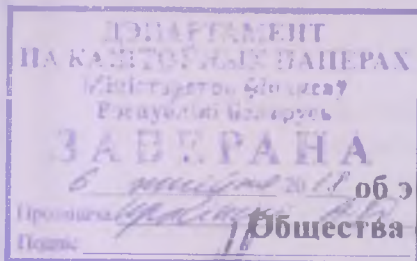 ДЭПАРТАМЕНТ
ПА КАШТОЎНЫХ ПАПЕРАХ
Міністэрства фінансаў
Рэспублікі Беларусь
ЗАВЕРАНА
6 20 18 об э
Прозвішча
Общества
Подпіс